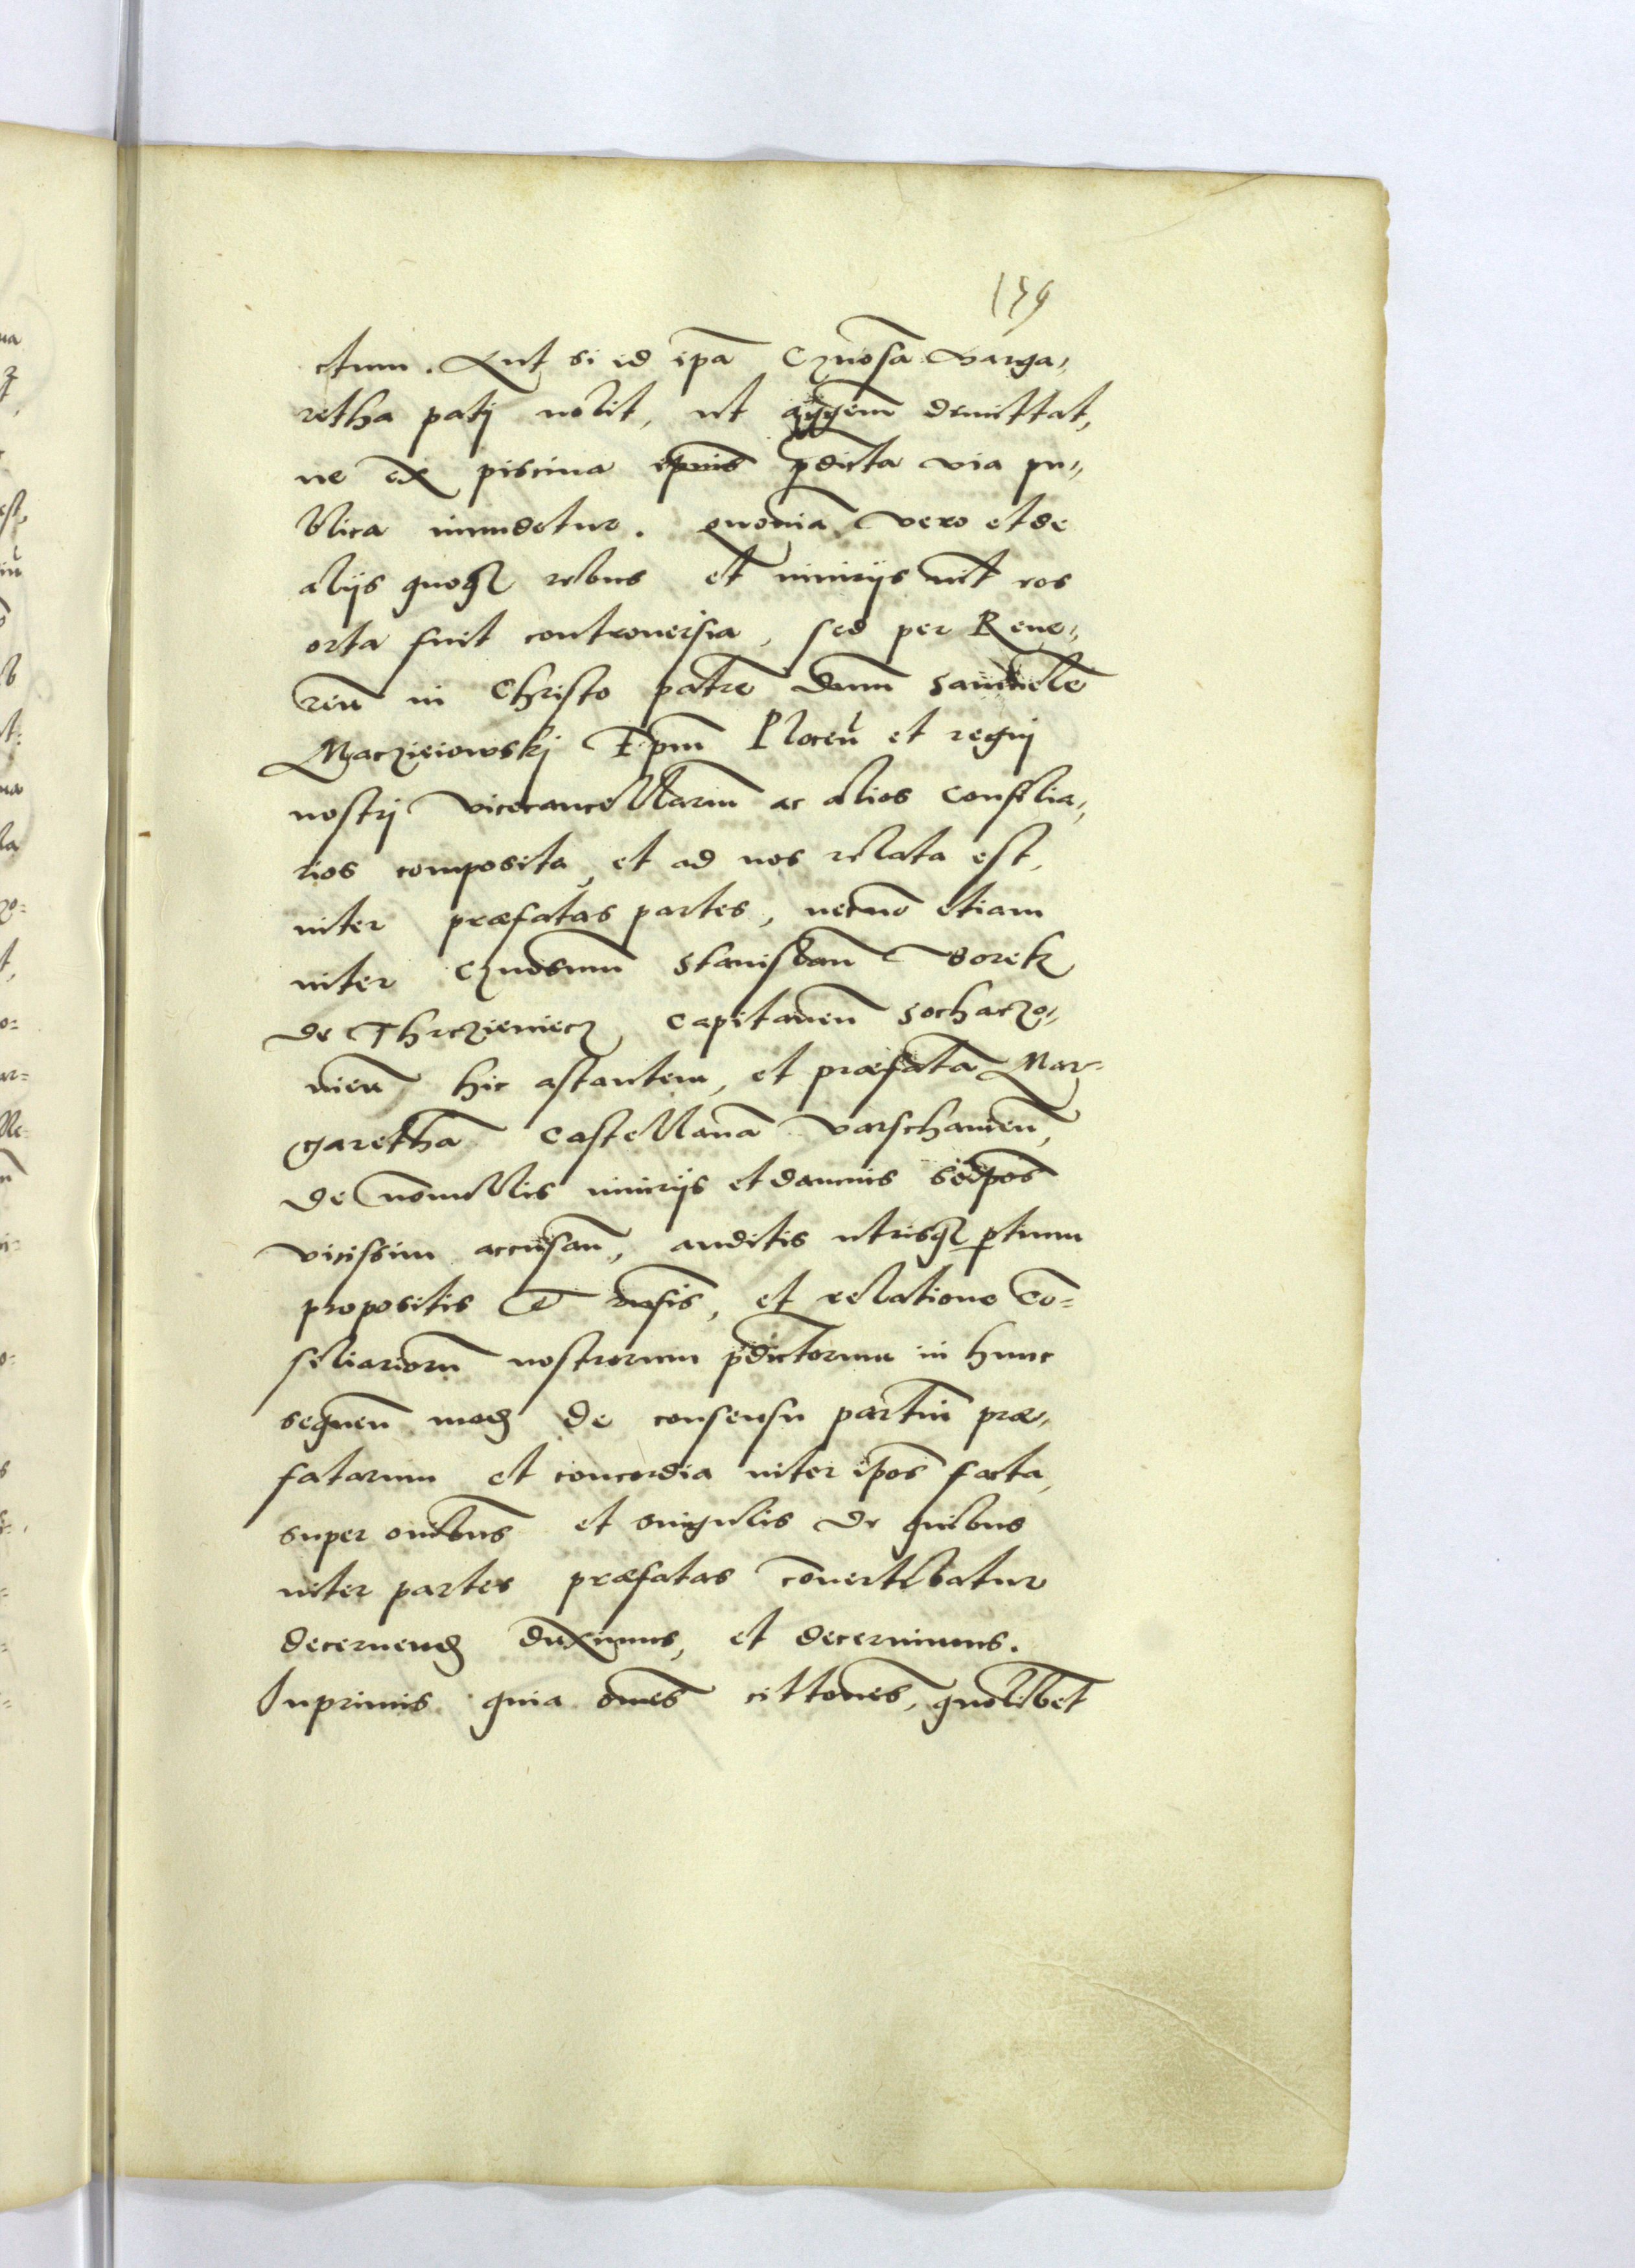 159
ctum. Aut si id ipa Gnosa Marga„
retha patj nolit, ut aggem demittat,
ne ex piscina ipius pdicta via pu„
blica inundetur. quonia vero et de
alijs quoq rebus et iniurijs int eos
orta fuit controuersia, sed per Reue„
ren in Christo patre dnum Samuele
Maczieiowskj Epm Plocen et regnj
nostrj vicecancellarium ac alios Consilia„
rios composita, et ad nos relata est,
inter præfatas partes, necno etiam
inter Gnosum Stanislaum
de capitaneu Sochaczo„
uien hic astantem, et præfata Mar=
garetha Castellana Varschauien,
de nonullis iniurijs et damnis
vicissim accusan, auditis utrisq ptium
propositis et , et relatione Co=
siliarioru nostrorum pdictorum in hunc
sequen mod de consensu partiu præ„
fatarum et concordia inter ipos facta,
super oibus et singulis de quibus
inter partes præfatas couertebatur
decernend duximus, et decernimus.
Inprimis quia omes cittones, quolibet